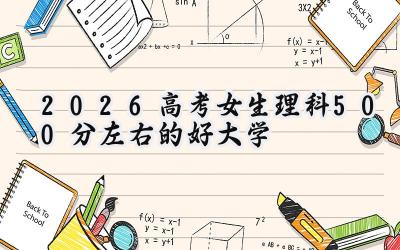 Back To
School
sin A
ax2 + bx + c = 0
3X2
f(x) = x-1
x = x-1
x = y+1
Back To
School
2026高考女生理科50
0分左右的好大学
Back To
School
f(x) = x-1
y = x-1
x = y+1
7²